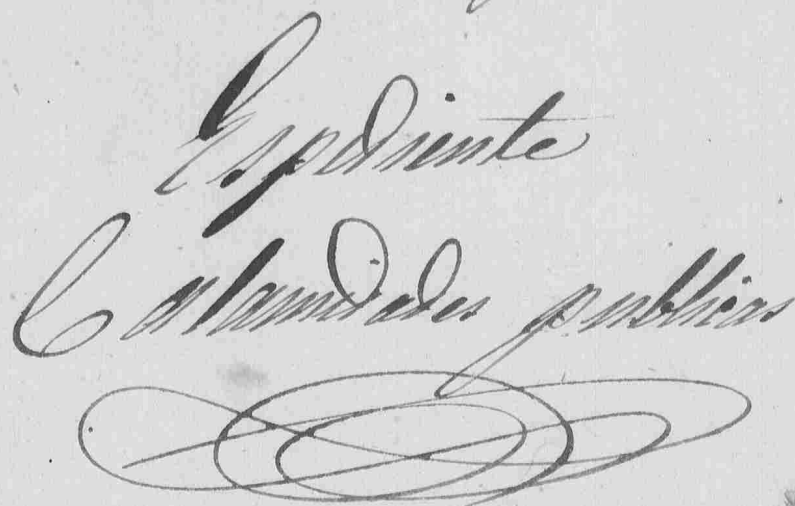 Espediente
Calamidades publicas